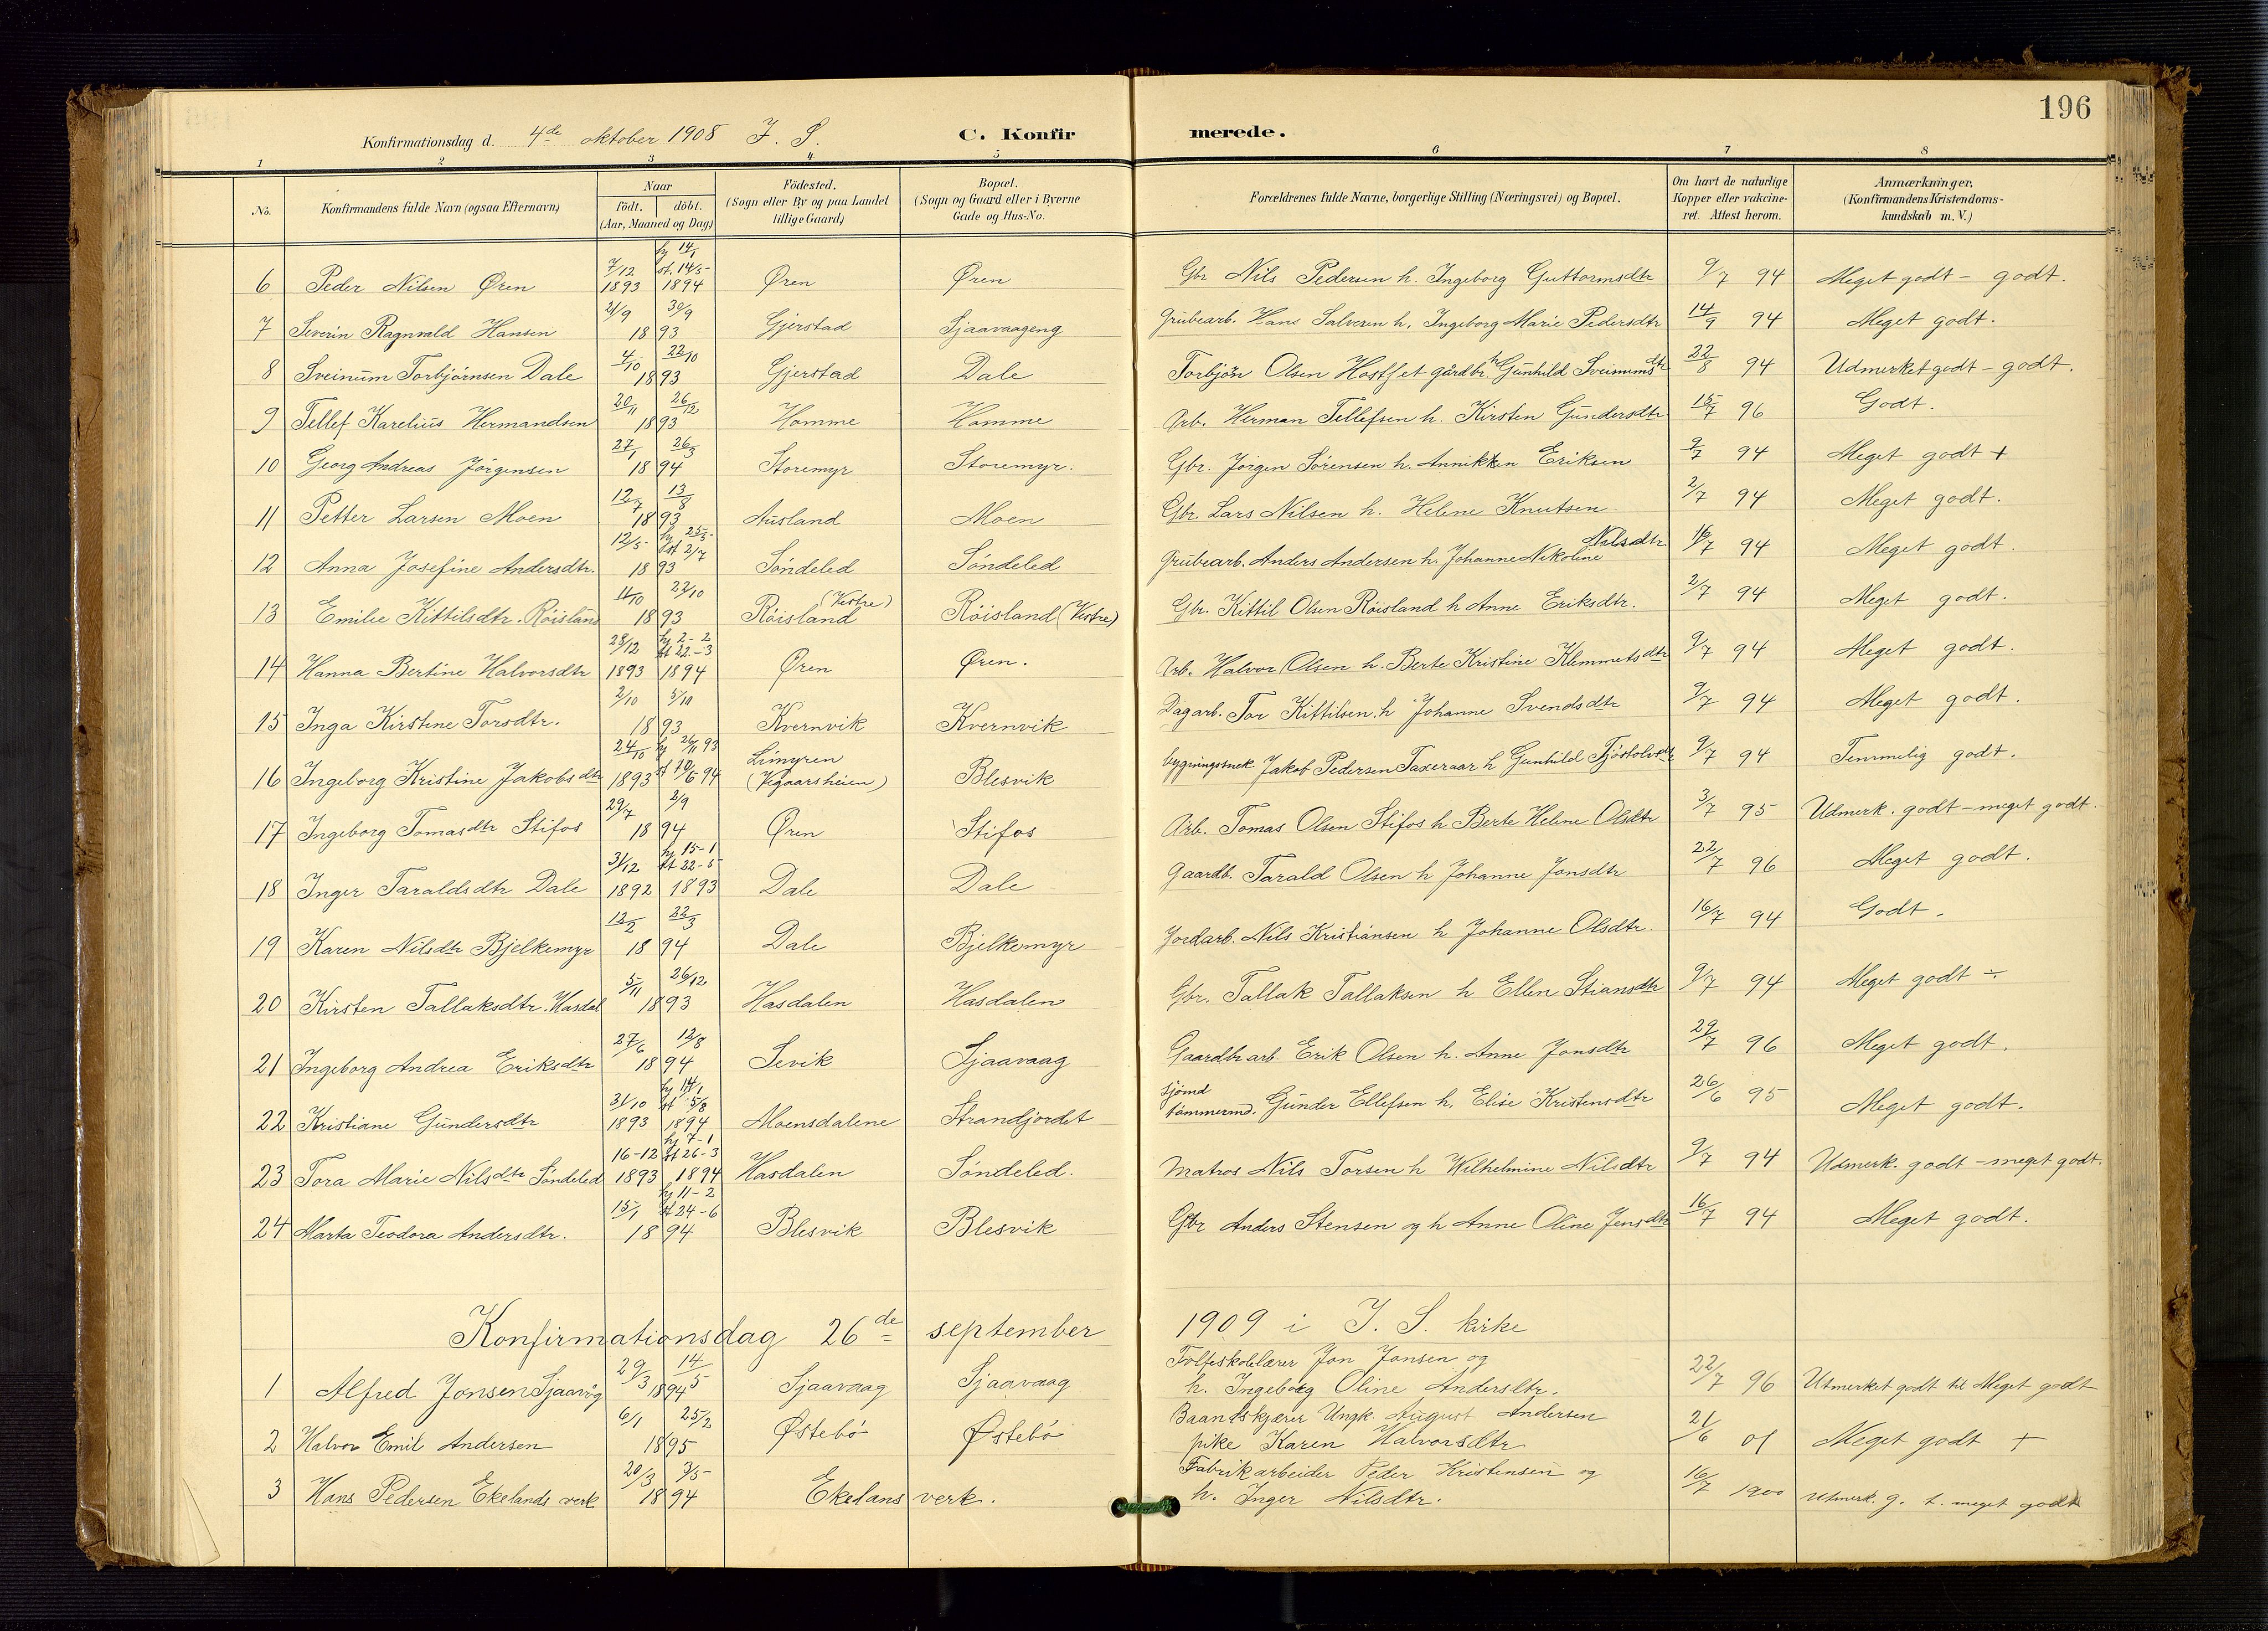 196
Konfirmationsdag d. 4de oktober 1908 I. S. C. Konfirmerede.
1 2 3 4 5 6 7 8
No. Konfirmandens fulde Navn (ogsaa Efternavn) Naar födt. döbt. (Aar, Maaned og Dag) Födested. (Sogn eller By og paa Landet tillige Gaard) Bopæl. (Sogn og Gaard eller i Byerne Gade og Hus-No. Forældrenes fulde Navne, borgerlige Stilling (Næringsvei) og Bopæl. Om havt de naturlige Kopper eller vakcineret. Attest herom. Anmærkninger, (Konfirmandens Kristendomskundskab m. V.)
6 Peder Nilsen Øren 7/12 1893 hj 14/1 st. 14/5 1894 Øren Øren Gbr Nils Pedersen h. Ingeborg Guttormsdtr 9/7 94 Meget godt - godt.
7 Severin Ragnvald Hansen 21/9 30/9 1893 Gjerstad Sjaavaageng Grubearb. Hans Salvesen h. Ingeborg Marie Pedersdtr 14/9 94 Meget godt.
8 Sveinum Torbjörnsen Dale 4/10 22/10 1893 Gjerstad Dale Torbjön Olsen gårdbr. h Gunhild Sveinumsdtr 22/8 94 Udmerket godt - godt.
9 Tellef Karelius Hermandsen 20/11 26/12 1893 Homme Homme Arb. Herman Tellefsen h. Kirsten Gundersdtr 15/7 96 Godt.
10 Georg Andreas Jörgensen 27/1 26/3 1894 Storemyr Storemyr. Gbr. Jörgen Sörensen h. Annikken Eriksen 9/7 94 Meget godt +
11 Petter Larsen Moen 12/7 13/8 1893 Ausland Moen Gbr. Lars Nilsen h. Helene Knutsen 2/7 94 Meget godt.
12 Anna Josefine Andersdtr. 12/5 hj 25/5 st 2/7 1893 Söndeled Söndeled Grubearb. Anders Andersen h. Johanne Nikoline Nilsdtr 16/7 94 Meget godt.
13 Emilie Kittilsdtr. Röisland 11/10 22/10 1893 Röisland (Vestre) Röisland (Vestre) Gbr. Kittil Olsen Röisland h Anne Eriksdtr. 2/7 94 Meget godt.
14 Hanna Bertine Halvorsdtr 28/12 1893 hj 2-2 st 22-3 1894 Øren Øren. Arb. Halvor Olsen h. Berte Kristine Klemmetsdtr 9/7 94 Meget godt.
15 Inga Kirstine Torsdtr. 2/10 5/10 1893 Kvernvik Kvernvik Dagarb. Tor Kittilsen h Johanne Svendsdtr 9/7 94 Meget godt.
16 Ingeborg Kristine Jakobsdtr 24/10 1893 hj 26/11 93 st 10/6 94 Limyren (Vegaarsheien) Blesvik bygningssnek. Jakob Pedersen Taxeraar h Gunhild 9/7 94 Temmelig godt.
17 Ingeborg Tomasdtr Stifos 29/7 2/9 1894 Øren Stifos Arb. Tomas Olsen Stifos h Berte Helene Olsdtr 3/7 95 Udmerk. godt - meget godt.
18 Inger Taraldsdtr Dale 31/12 1892 hj 15-1 st 22-5 1893 Dale Dale Gaardb. Tarald Olsen h Johanne Jonsdtr 22/7 96 Meget godt.
19 Karen Nilsdtr Bjelkemyr 12/2 22/3 1894 Dale Bjelkemyr Jordarb. Nils Kristiansen h Johanne Olsdtr. 16/7 94 Godt.
20 Kirsten Tallaksdtr. Hasdal 5/11 26/12 1893 Hasdalen Hasdalen Gbr. Tallak Tallaksen h Ellen Stiansdtr 9/7 94 Meget godt ÷
21 Ingeborg Andrea Eriksdtr 27/6 12/8 1894 Sevik Sjaavaag Gaardbrarb. Erik Olsen h. Anne Jonsdtr 29/7 96 Meget godt.
22 Kristiane Gundersdtr 31/10 1893 hj 14/1 st 5/8 1894 Moensdalene Strandjordet sjömd tömmermd. Gunder Ellefsen h. Elise Kristensdtr 26/6 95 Meget godt.
23 Tora Marie Nilsdtr Söndeled 16-12 1893 hj 7-1 st 26-3 1894 Hasdalen Söndeled. Matros Nils Torsen h Wilhelmine Nilsdtr 9/7 94 Udmerk. godt - meget godt.
24 Marta Teodora Andersdtr. 15/1 hj 11-2 st 24-6 1894 Blesvik Blesvik Gbr Anders Stensen og h Anne Oline Jensdtr 16/7 94 Meget godt.
Konfirmationsdag 26de september 1909 i I. S. kirke
1 Alfred Jonsen Sjaavåg 29/3 14/5 1894 Sjaavaag Sjaavaag Folkeskolelærer Jon Jonsen og h. Ingeborg Oline Andersdtr. 22/7 96 Utmerket godt til Meget godt
2 Halvor Emil Andersen 6/1 25/2 1895 Østebö Østebö Baandskjærer Ungk. August Andersen pike Karen Halvorsdtr 21/6 01 Meget godt +
3 Hans Pedersen Ekelands verk 20/3 3/5 1894 Ekelans verk. Fabrikarbeider Peder Kristensen og h. Inger Nilsdtr. 16/7 1900 Utmerk. g. t. meget godt